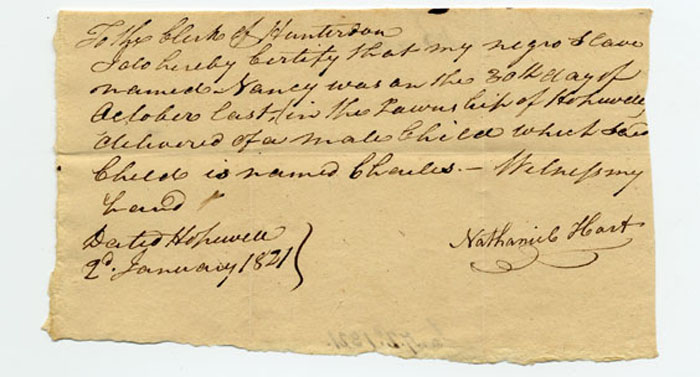 To the Clerk of Hunterdon
I do hereby Certify that my negro Slave
named Nancy was on the 30th day of
October last, (in the Township of Hopewell,
delivered of a male Child which said
Child is named Charles. — Witness my
hand
Dated Hopewell
2d. January 1821
Nathaniel Hart